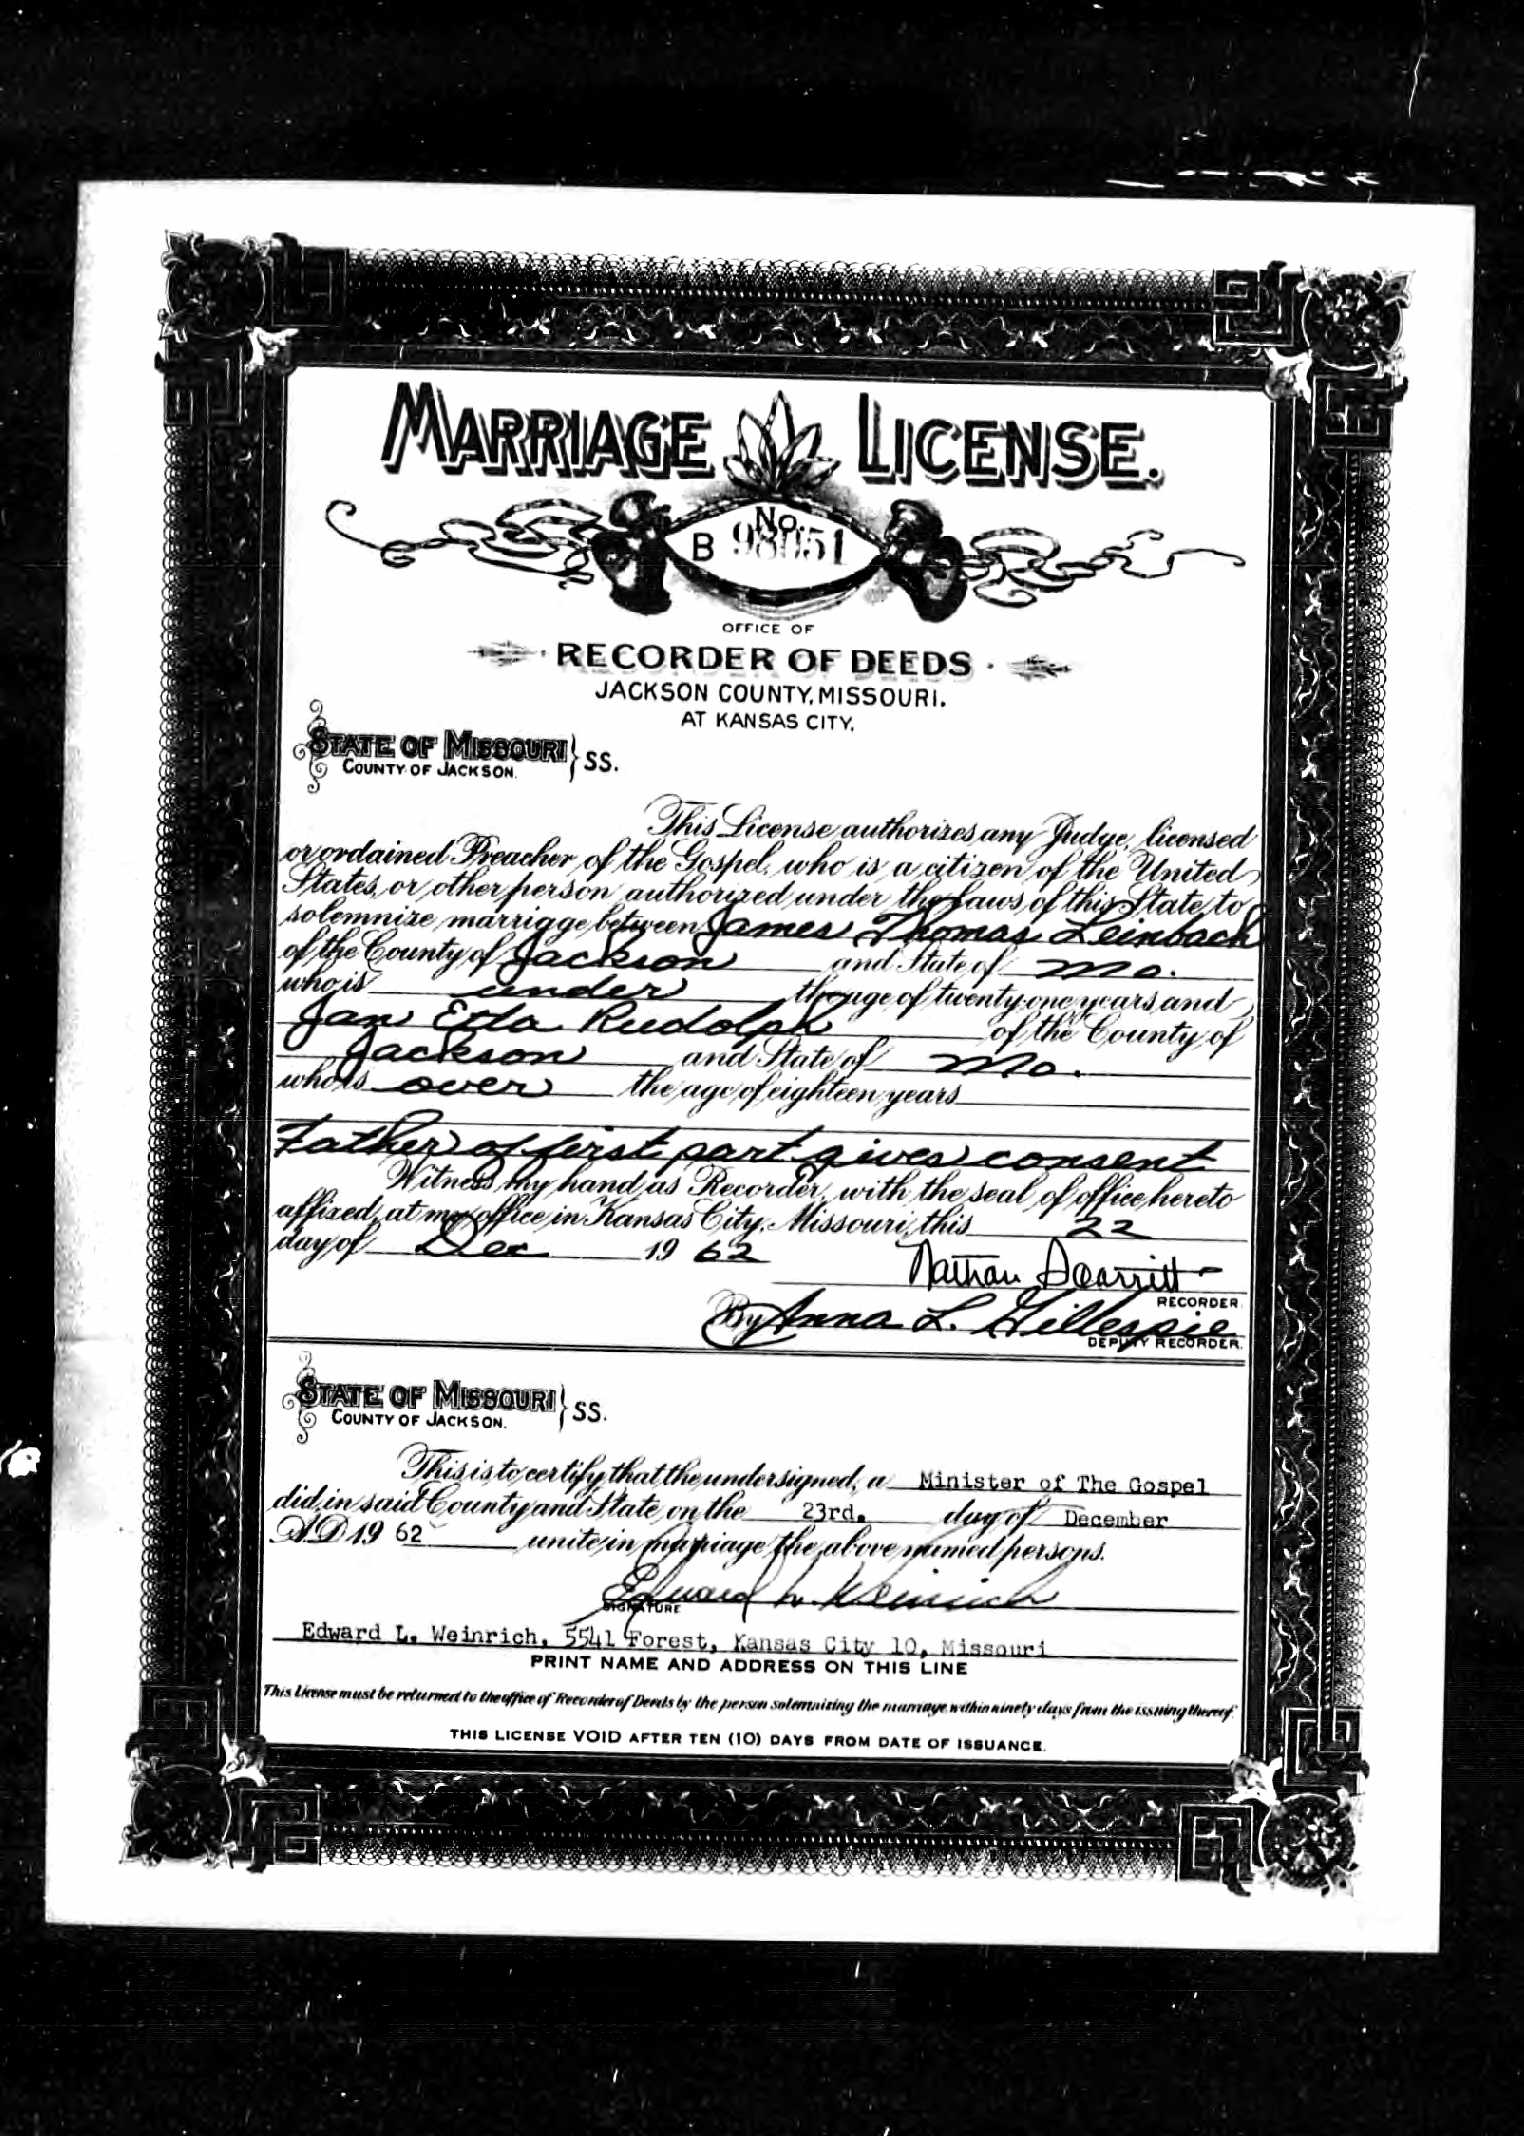 MARRIAGE LICENSE.
No.
B 98051
OFFICE OF
RECORDER OF DEEDS
JACKSON COUNTY, MISSOURI.
AT KANSAS CITY.
STATE OF MISSOURI
COUNTY OF JACKSON. } SS.
This License authorizes any Judge, licensed
or ordained Preacher of the Gospel, who is a citizen of the United
States, or other person authorized under the Laws of this State to
solemnize marriage between James Thomas Leinbach
of the County of Jackson and State of Mo.
who is under the age of twenty-one years and
Jan Eda Rudolph of the County of
Jackson and State of Mo.
who is over the age of eighteen years
Father of first part gives consent
Witness my hand as Recorder, with the seal of office hereto
affixed, at my office in Kansas City, Missouri, this 22
day of Dec 19 62
Nathan Scarritt
RECORDER.
By Anna L. Gillespie
DEPUTY RECORDER.
STATE OF MISSOURI
COUNTY OF JACKSON. } SS.
This is to certify that the undersigned, a Minister of The Gospel
did in said County and State on the 23rd. day of December
A.D. 19 62 unite in marriage the above named persons.
Edward L. Weinrich
SIGNATURE
Edward L. Weinrich, 5541 Forest, Kansas City 10, Missouri
PRINT NAME AND ADDRESS ON THIS LINE
This License must be returned to the office of Recorder of Deeds by the person solemnizing the marriage within ninety days from the issuing thereof.
THIS LICENSE VOID AFTER TEN (10) DAYS FROM DATE OF ISSUANCE.